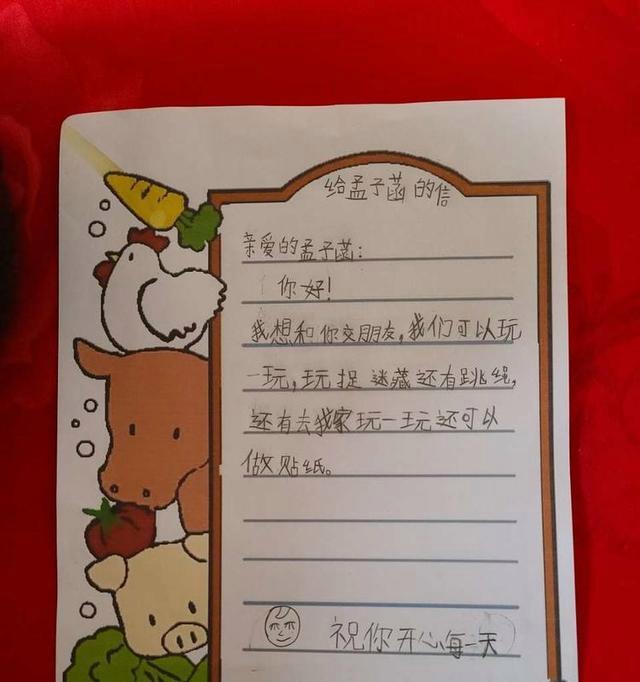 给孟子菡的信
亲爱的孟子菡：
你好！
我想和你交朋友，我们可以玩
一玩，玩捉迷藏还有跳绳，
还有去我家玩一玩还可以
做贴纸。
祝你开心每一天